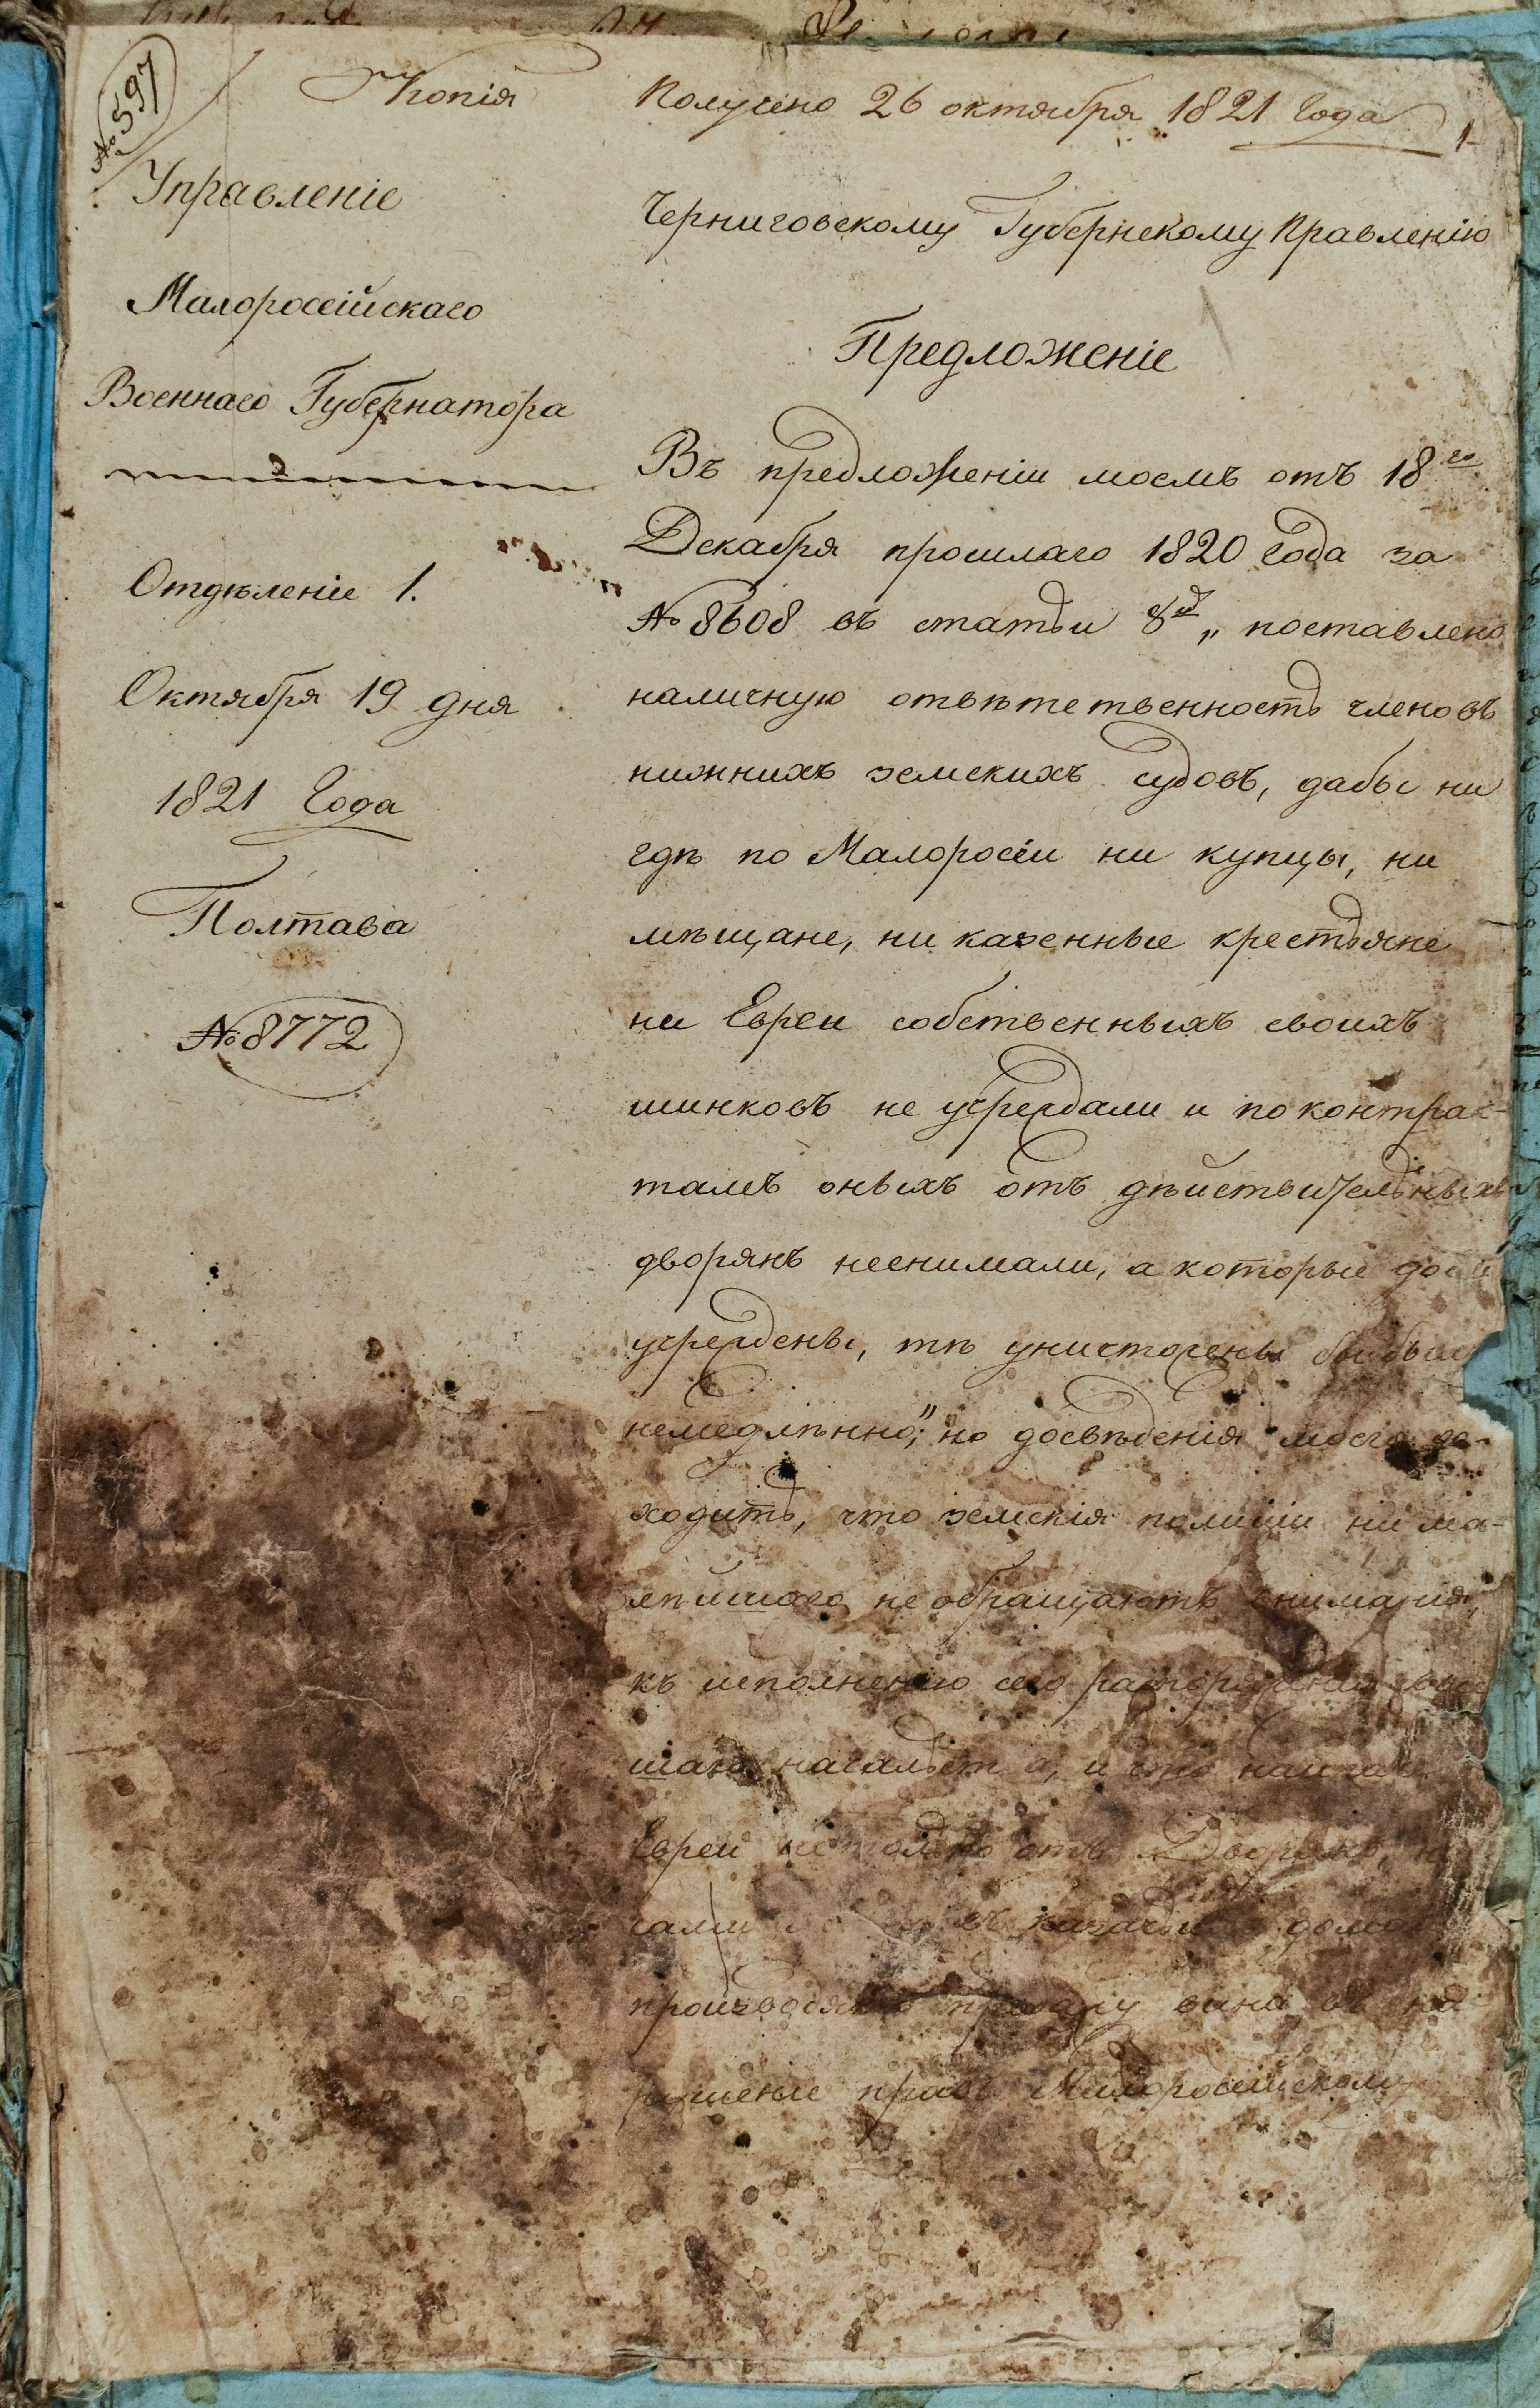 № 597
Копія
Получено 26 октября 1821 Года
1
Управленіе
Малоросійскаго
Военнаго Губернатора
Отдѣленіе 1.
Октября 19 дня
1821 Года
Полтава
№ 8772
Черниговскому Губернскому Правленію
Предложеніе
Въ предложеніи моемъ отъ 18го
Декабря прошлаго 1820 Года за
№ 8608 въ статьи 8й „ поставлено
наличную отвѣтственность членовъ
нижнихъ земскихъ судовъ, дабы ни
гдѣ по Малоросіи ни купцы, ни
мѣщане, ни казенные крестьяне
ни Евреи собственныхъ своихъ
шинковъ не учреждали и по контрак-
тамъ оныхъ отъ дѣйствительныхъ
дворянъ неснимали, а которые
учреждены, тѣ уничтожены бы были
немедлѣнно;" но досвѣденія моего до-
ходитъ, что земскія полиціи ни ма-
лѣйшаго не обращаютъ вниманія,
къ исполненію сего распоряженія
шаго начальства, и что наипаче
Евреи не только отъ Дворянъ, но
домах
производятъ продажу вина въ на-
рушеніе правъ Малоросійскому